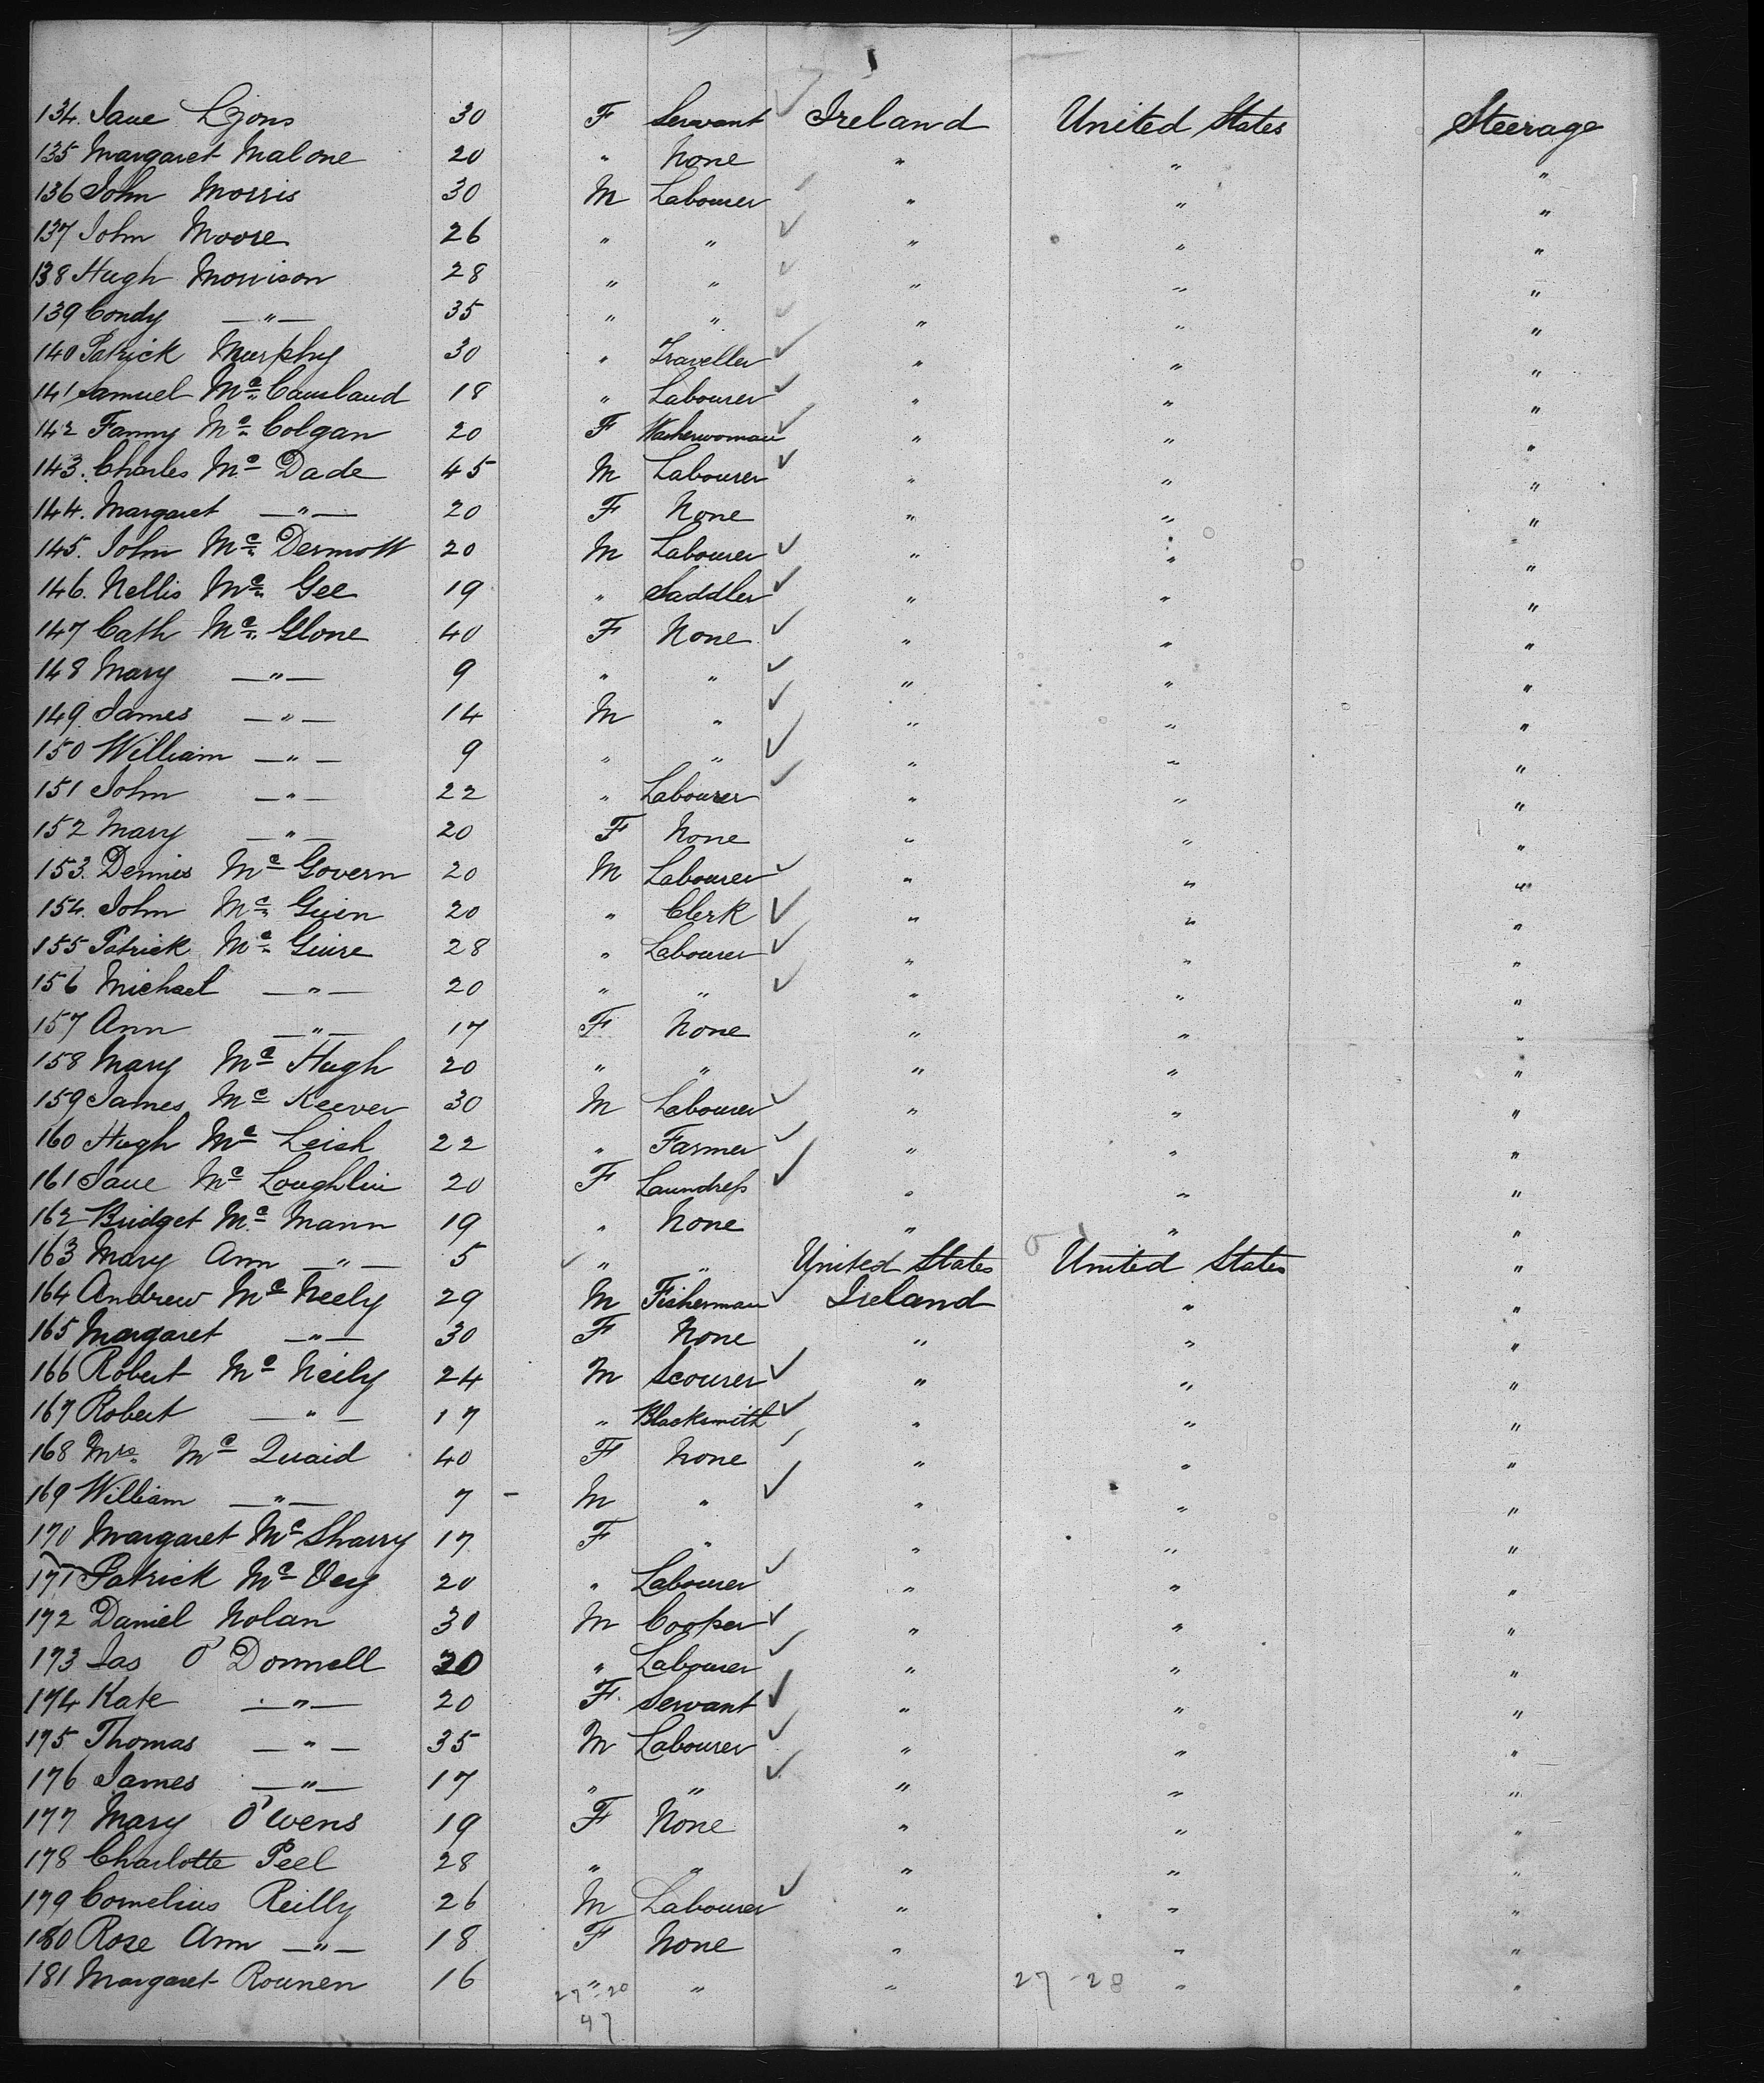 134. Jane Lyons 30 F Servant Ireland United States Steerage
135 Margaret Malone 20 " None " " "
136 John Morris 30 M Labourer " " "
137 John Moore 26 " " " " "
138 Hugh Morrison 28 " " " " "
139 Condy —"— 35 " " " " "
140 Patrick Murphy 30 " Traveller " " "
141 Samuel Mc Causland 18 " Labourer " " "
142 Fanny Mc Colgan 20 F Washerwoman " " "
143. Charles Mc Dade 45 M Labourer " " "
144. Margaret —"— 20 F None " " "
145. John Mc Dermott 20 M Labourer " " "
146. Nellis Mc Gee 19 " Saddler " " "
147 Cath Mc Glone 40 F None " " "
148 Mary —"— 9 " " " " "
149. James —"— 14 M " " " "
150 William —"— 9 " " " " "
151 John —"— 22 " Labourer " " "
152 Mary —"— 20 F None " " "
153. Dennis Mc Govern 20 M Labourer " " "
154. John Mc Guin 20 " Clerk " " "
155 Patrick Mc Guire 28 " Labourer " " "
156 Michael —"— 20 " " " " "
157 Ann —"— 17 F None " " "
158 Mary Mc Hugh 20 " " " " "
159 James Mc Keever 30 M Labourer " " "
160 Hugh Mc Leish 22 " Farmer " " "
161 Jane Mc Loughlin 20 F Laundress " " "
162 Bridget Mc Mann 19 " None " " "
163 Mary Ann —"— 5 " " United States United States "
164 Andrew Mc Neely 29 M Fisherman Ireland " "
165 Margaret —"— 30 F None " " "
166 Robert Mc Neily 24 M Scourer " " "
167 Robert —"— 17 " Blacksmith " " "
168 Mrs. Mc Quaid 40 F None " " "
169 William —"— 7 – M " " " "
170 Margaret Mc Sharry 17 F " " " "
171 Patrick Mc Vey 20 " Labourer " " "
172 Daniel Nolan 30 M Cooper " " "
173 Jas O'Donnell 30 " Labourer " " "
174 Kate —"— 20 F. Servant " " "
175 Thomas —"— 35 M Labourer " " "
176 James —"— 17 " " " " "
177 Mary O'wens 19 F None " " "
178 Charlotte Peel 28 " " " " "
179 Cornelius Reilly 26 M Labourer " " "
180 Rose Ann —"— 18 F None " " "
181 Margaret Rounen 16 " " " " "
27-20 27-28
47